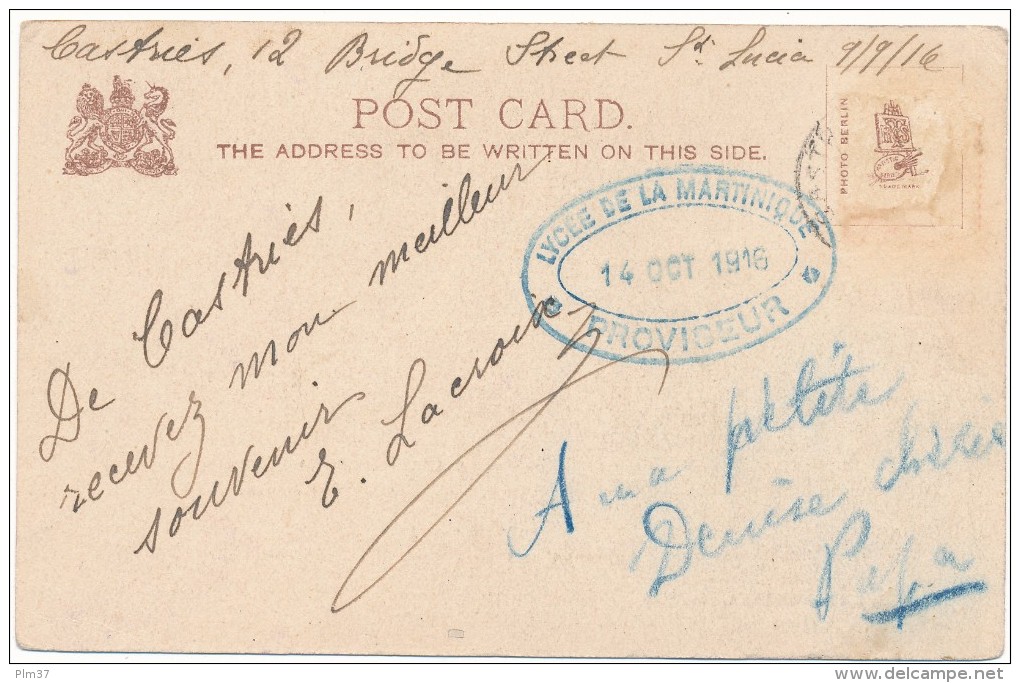 Castries, 12 Bridge Street St Lucia 9/9/16
POST CARD.
THE ADDRESS TO BE WRITTEN ON THIS SIDE.
PHOTO BERLIN
TRADE MARK
LYCÉE DE LA MARTINIQUE
14 OCT 1916
PROVISEUR
De Castries,
recevez mon meilleur
souvenir
E. Lacroix
A ma petite
Denise chérie
Papa
Plm37
www.delcampe.net